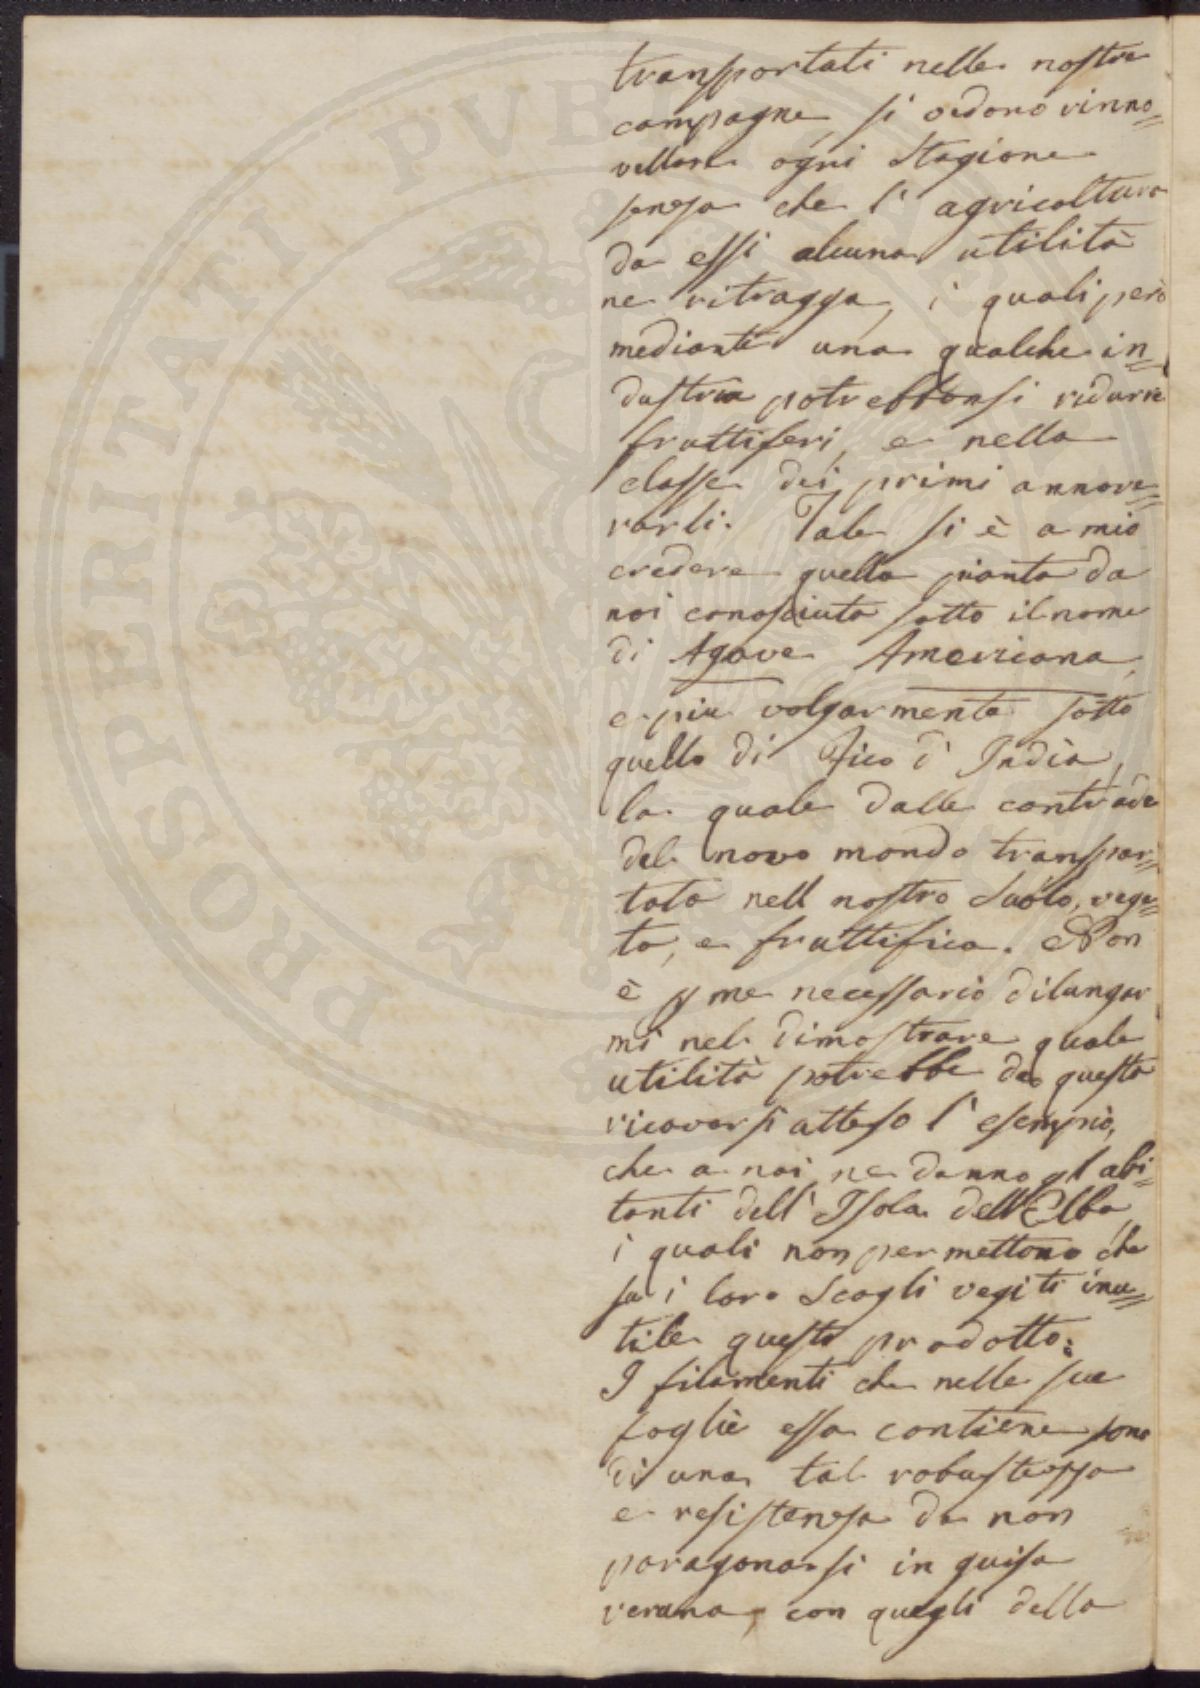 transportati nelle nostre
campagne, si vedono rinno=
vellare ogni Stagione
senza che l' agricoltura
da essi alcuna utilità
ne ritragga, i quali però
mediante una qualche in=
dustria potrebbonsi ridurre
fruttiferi, e nella
classe dei primi annove=
rarli. Tale si è a mio
credere quella pianta da
noi conosciuta sotto il nome
di Agave Americana,
e piu volgarmente sotto
quello di Fico d' India,
la quale dalle contrade
del novo mondo transpor=
tata nell nostro Suolo, vege=
ta, e fruttifica. Non
è p me necessario dilungar
mi nel dimostrare quale
utilità potrebbe da questa
ricavarsi atteso l' esempio,
che a noi ne danno gl abi=
tanti dell' Isola dell'Elba,
i quali non permettono che
su i loro Scogli vegiti inu=
tile questo prodotto:
I filamenti che nelle sue
foglie essa contiene sono
di una tal robustezza
e resistenza da non
paragonarsi in guisa
veruna, con quegli della
PROSPERITATI PVBL